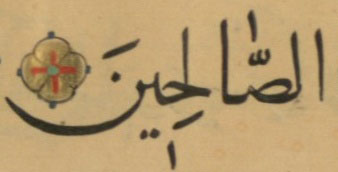 الصَّالِحِينَ